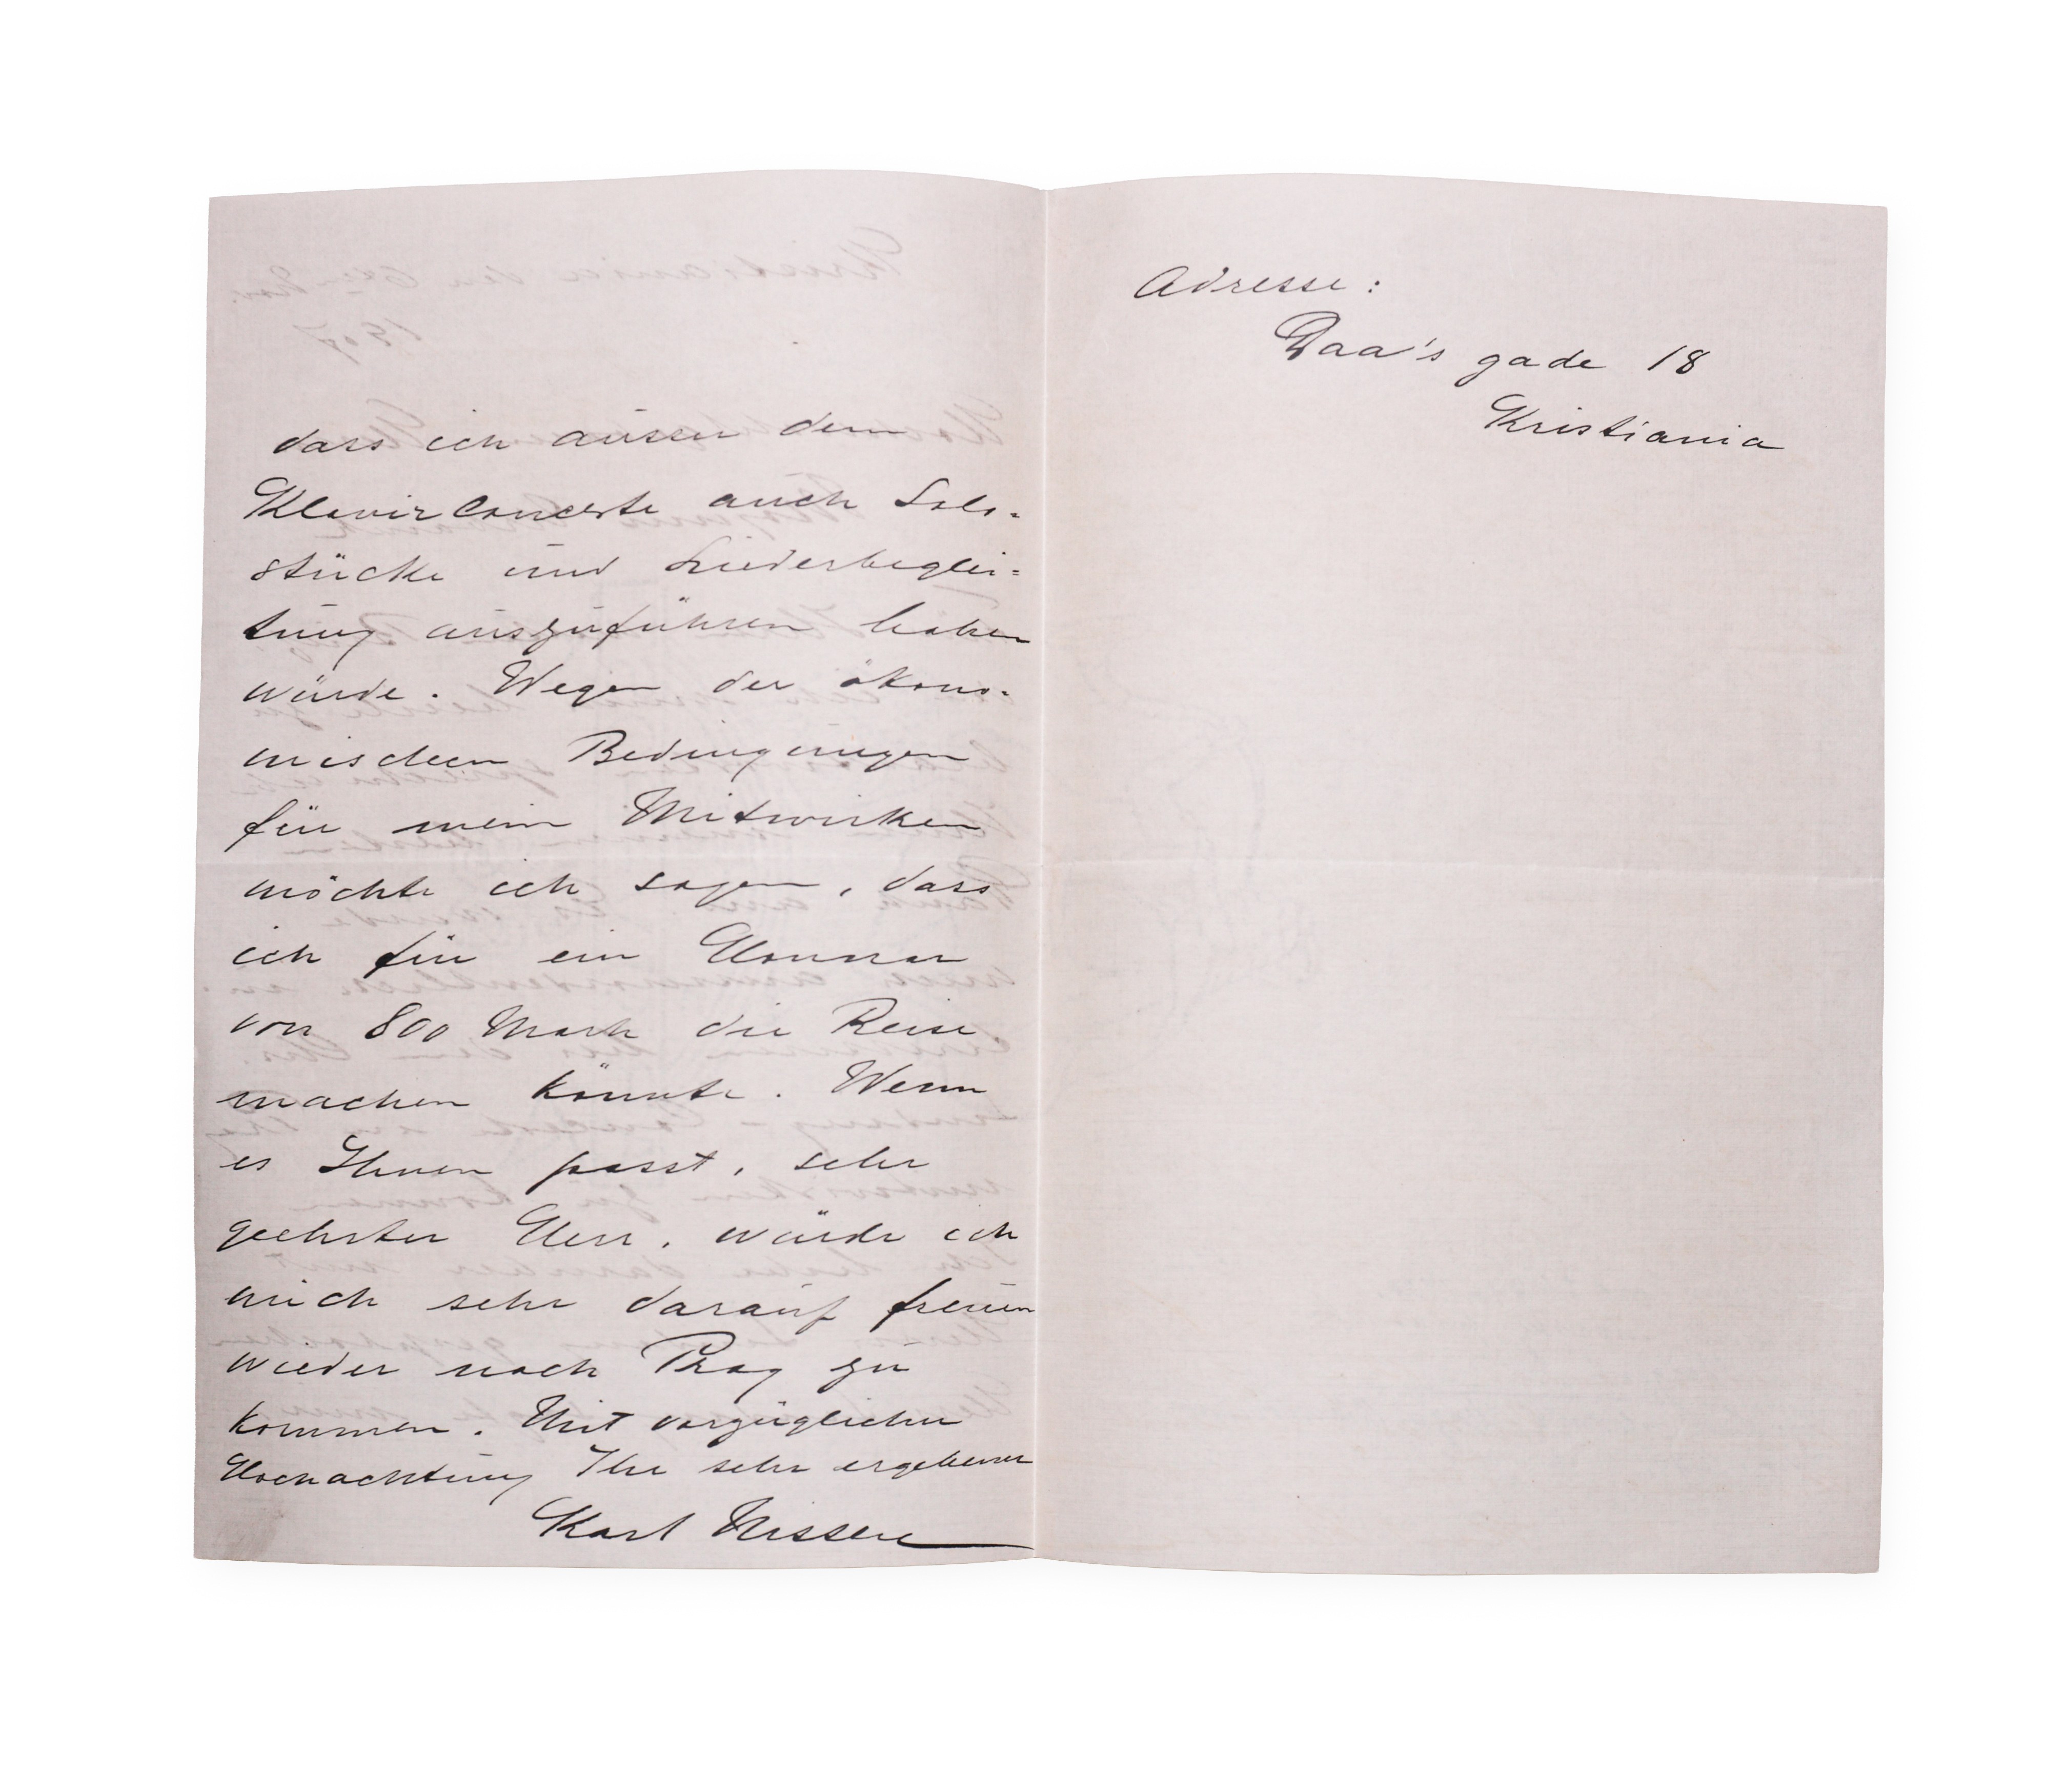 dass ich ausser dem
Klavierconcerte auch Solo-
stücke und Liederbeglei=
tung auszuführen haben
würde. Wegen der ökono-
mischen Bedingungen
für mein Mitwirken
möchte ich sagen, dass
ich für ein Honorar
von 800 Mark die Reise
machen könnte. Wenn
es Ihnen passt, sehr
geehrter Herr, würde ich
mich sehr darauf freuen
wieder nach Prag zu
kommen. Mit vorzüglicher
Hochachtung Ihr sehr ergebener
Karl Nissen
Adresse:
Daa's gade 18
Kristiania